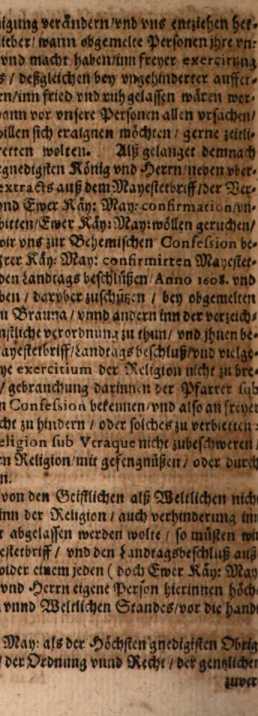 igung verändern/vnd vns entziehen hel-
lieber/wann obgemelte Personen jhre vn-
vnd macht haben/inn freyer exercirung
s/deßgleichen bey vngehinderter auffer-
en/inn fried vnd ruh gelassen wären wor-
wann vor vnsere Personen allen vrsachen/
willen sich eraignen möchten/gerne zeitli-
retten wolten. Alß gelanget demnach
gnedigsten König vnd Herrn/neben vber-
extracts auß dem Mayestetbriff/der Ver-
vnd Ewer Käy: May: confirmation/vn-
bitten/Ewer Käy: May: wöllen geruchen/
wir vns zur Behemischen Confession be-
Ihrer Käy: May: confirmirten Mayestet-
den Landtags beschlüssen/Anno 1608. vnd
ben/darüber zuschützen/bey obgemelten
n Brauna/vnnd andern inn der verzeich-
nstliche verordnung zu thun/vnd jhnen be-
ayestetbriff/Landtags beschluß/vnd vielge-
ye exercitium der Religion nicht zu bre-
/gebrauchung darinnen der Pfarrer sub
n Confession bekennen/vnd also an freyer
cht zu hindern/oder solches zu verbietten:
eligion sub Vtraque nicht zubeschweren/
rn Religion/mit gefengnüßen/oder durch
n.
von den Geistlichen alß Weltlichen nich
inn der Religion/auch verhinderung im
r abgelassen werden wolte/so müsten wir
estetbriff/vnd den Landtagsbeschluß auß
wider einem jeden (doch Ewer Käy: May
vnd Herrn eigene Person hierinnen höch
vnnd Weltlichen Standes/vor die handt
May: als der Höchsten gnedigisten Obrig
/der Ordnung vnnd Recht/der gentzlichen
zuver